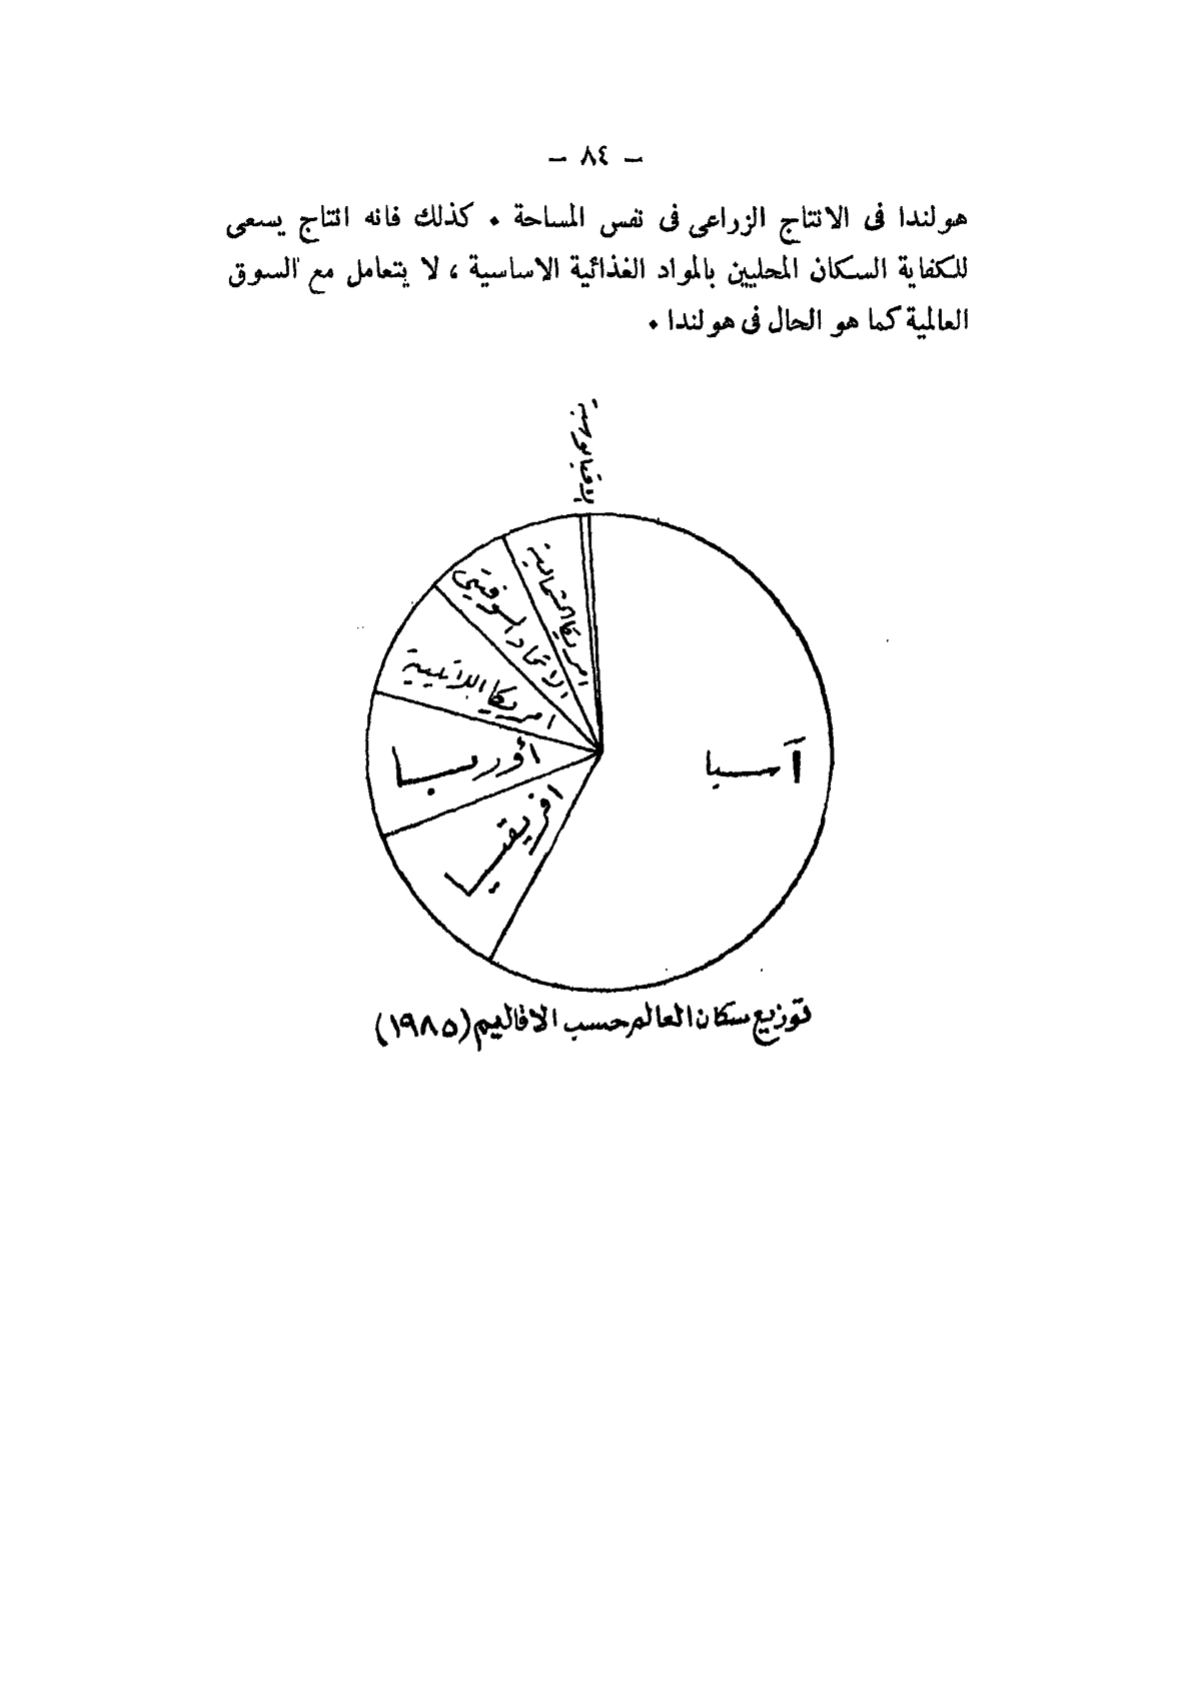 — ٨٤ —
هولندا فى الانتاج الزراعى فى نفس المساحة . كذلك فانه انتاج يسعى
للكفاية السكان المحليين بالمواد الغذائية الاساسية ، لا يتعامل مع السوق
العالمية كما هو الحال فى هولندا .
الاقيانوسية
امريكا الشمالية
الاتحاد السوفيتى
امريكا اللاتينية
أوربا
افريقيا
آسيا
توزيع سكان العالم حسب الاقاليم (١٩٨٥)